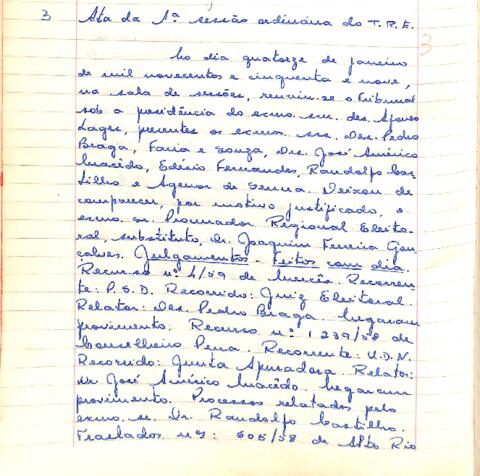 3 Ata da 1ª sessão ordinária do T.R.E.
3
No dia quatorze de janeiro
de mil novecentos e cinquenta e nove,
na sala de sessões, reuniu-se o Tribunal
sob a presidência do exmo. snr. des. Afonso
Lages, presentes os exmos. srs. Des. Pedro
Braga, Faria e Souza, Drs. José Américo
Macêdo, Edésio Fernandes, Randolfo Cas-
tilho e Agenor de Senna. Deixou de
comparecer, por motivo justificado, o
exmo. sr. Procurador Regional Eleito-
ral, substituto, Dr. Joaquim Ferreira Gon-
çalves. Julgamentos - Feitos com dia.
Recurso nº 4/59 de Mercês. Recorren-
te: P.S.D. Recorrido: Juiz Eleitoral.
Relator: Des. Pedro Braga. Negaram
provimento. Recurso nº 1239/58 de
Conselheiro Pena. Recorrente: U.D.N.
Recorrido: Junta Apuradora. Relator:
Dr. José Américo Macêdo. Negaram
provimento. Processos relatados pelo
exmo. sr. Dr. Randolfo Castilho.
Traslados nºs: 606/58 de Alto Rio